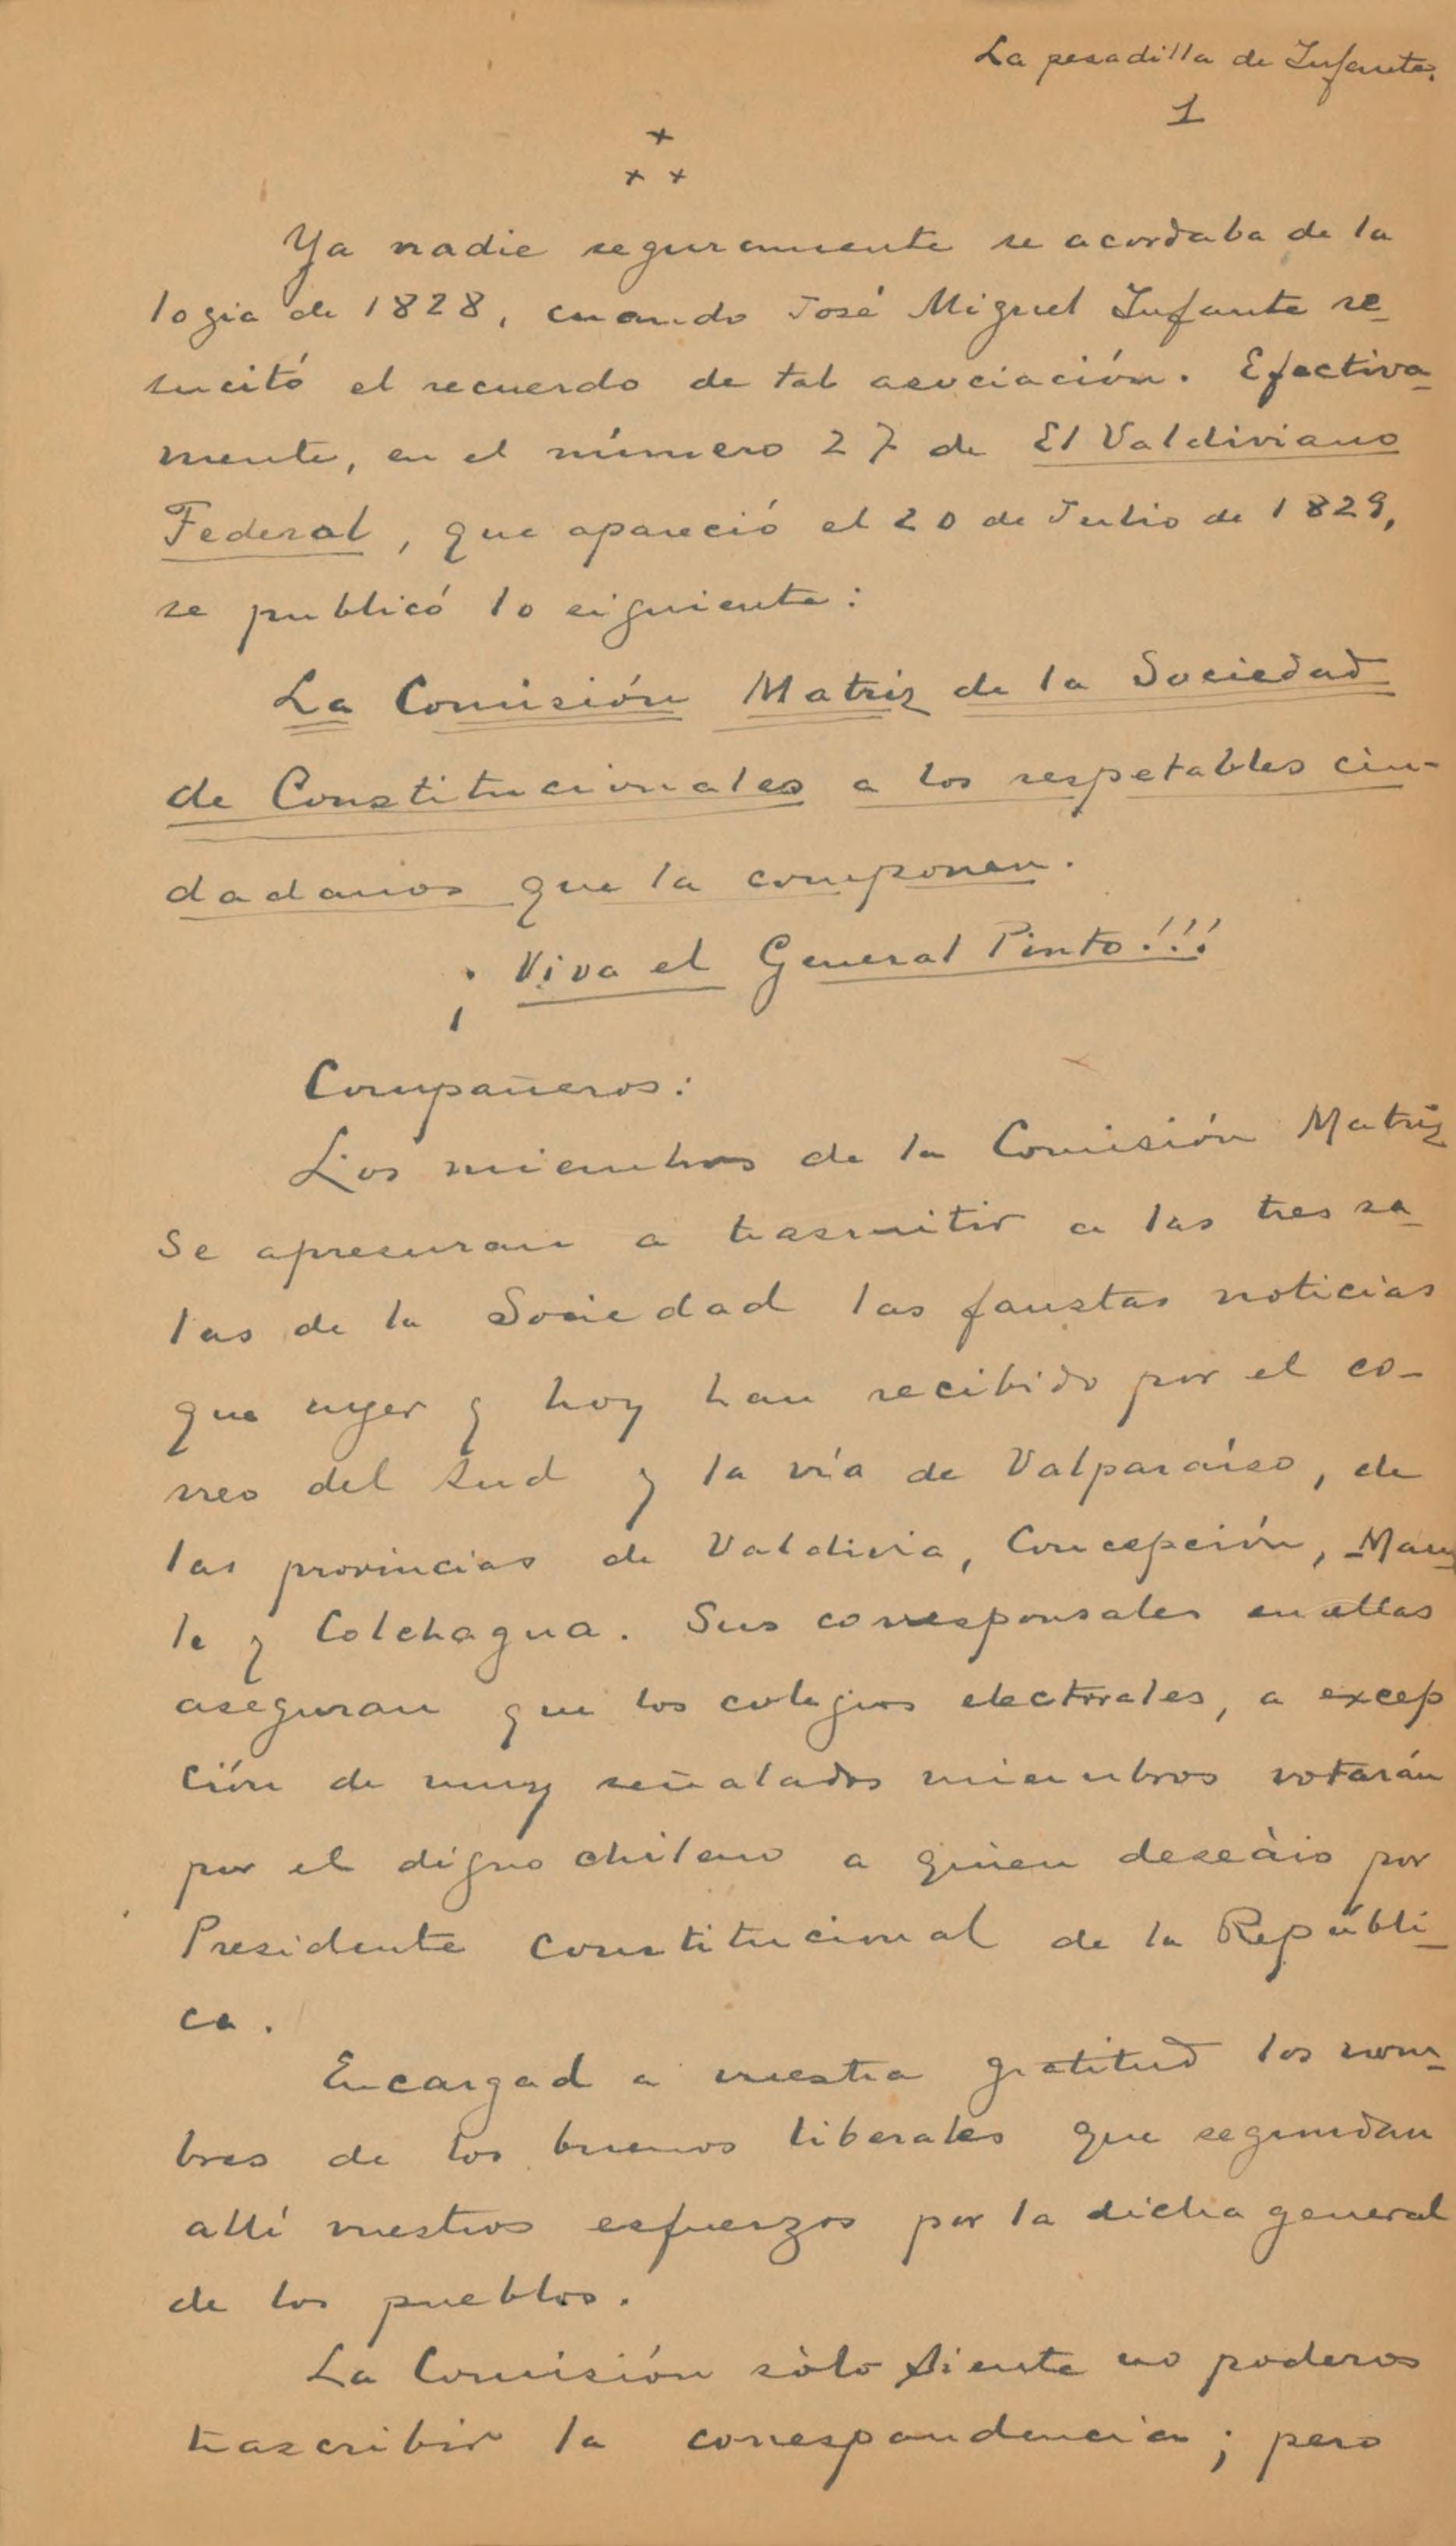 La pesadilla de Infante.
1
Ya nadie seguramente se acordaba de la
logia de 1828, cuando José Miguel Infante re-
sucitó el recuerdo de tal asociación. Efectiva-
mente, en el número 27 de El Valdiviano
Federal, que apareció el 20 de Julio de 1829,
se publicó lo siguiente:
La Comisión Matriz de la Sociedad
de Constitucionales a los respetables ciu-
dadanos que la componen.
¡Viva el General Pinto!!!
Compañeros:
Los miembros de la Comisión Matriz
se apresuran a trasmitir a las tres sa-
las de la Sociedad las faustas noticias
que ayer y hoy han recibido por el co-
rreo del sud y la vía de Valparaíso, de
las provincias de Valdivia, Concepción, Mau-
le y Colchagua. Sus corresponsales en ellas
aseguran que los colegios electorales, a excep
ción de muy señalados miembros votarán
por el digno chileno a quien deseáis por
Presidente constitucional de la Repúbli-
ca.
Encargad a vuestra gratitud los nom-
bres de los buenos liberales que segundan
allí vuestros esfuerzos por la dicha general
de los pueblos.
La Comisión sólo siente no poderos
trascribir la correspondencia; pero